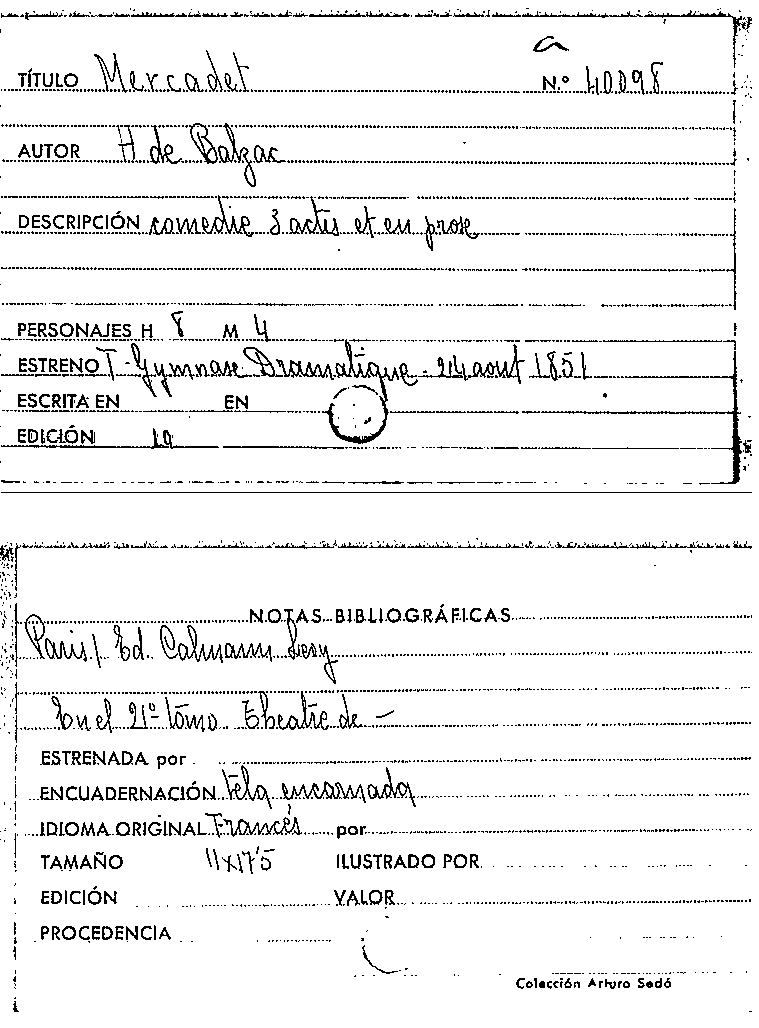 a
TÍTULO Mercadet N.º 40098
AUTOR H de Balzac
DESCRIPCIÓN comedie 3 actes et en prose
PERSONAJES H 8 M 4
ESTRENO T. Gymnase Dramatique - 24 aout 1851
ESCRITA EN EN
EDICIÓN
NOTAS BIBLIOGRÁFICAS
Paris / Ed. Calmann Levy
En el 21º tomo Theatre de —
ESTRENADA por
ENCUADERNACIÓN tela encarnada
IDIOMA ORIGINAL Francés por
TAMAÑO 11x17'5 ILUSTRADO POR
EDICIÓN VALOR
PROCEDENCIA
Colección Arturo Sedó